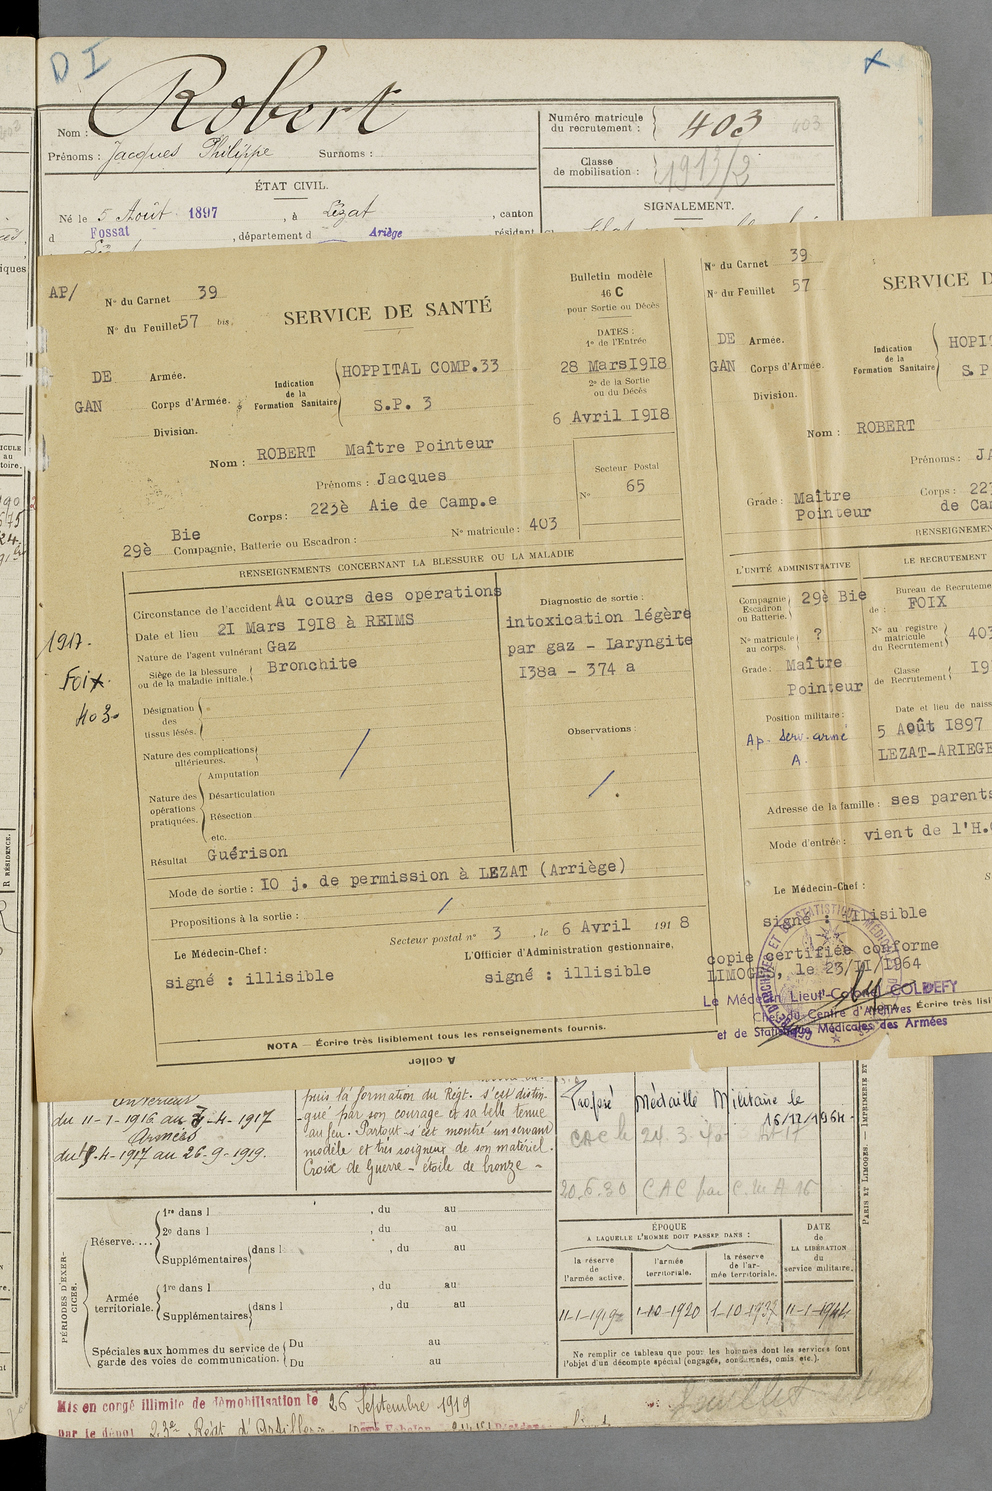 D I
Robert
Nom :
Prénoms : Jacques Philippe Surnoms :
Numéro matricule
du recrutement : 403 403
Classe
de mobilisation : 1913/2
ÉTAT CIVIL.
Né le 5 Août 1897, à Lézat, canton
d Fossat, département d Ariège, résidant
SIGNALEMENT.
AP/
N° du Carnet 39
N° du Feuillet 57 bis.
SERVICE DE SANTÉ
Bulletin modèle
46 C
pour Sortie ou Décès
DATES :
1° de l'Entrée
28 Mars1918
2° de la Sortie
ou du Décès
6 Avril 1918
DE Armée.
GAN Corps d'Armée.
Division.
Indication
de la
Formation Sanitaire
HOPPITAL COMP.33
S.P. 3
Nom : ROBERT Maître Pointeur
Prénoms : Jacques
Corps : 223è Aie de Camp.e
Secteur Postal
N° 65
29è Bie
Compagnie, Batterie ou Escadron : N° matricule : 403
RENSEIGNEMENTS CONCERNANT LA BLESSURE OU LA MALADIE
Circonstance de l'accident Au cours des operations
Date et lieu 21 Mars 1918 à REIMS
Nature de l'agent vulnérant Gaz
Siège de la blessure
ou de la maladie initiale. Bronchite
Désignation
des
tissus lésés.
Nature des complications
ultérieures.
Nature des
opérations
pratiquées.
Amputation
Désarticulation
Résection
etc.
Résultat Guérison
Diagnostic de sortie :
intoxication légère
par gaz - Laryngite
138a - 374 a
Observations :
Mode de sortie : 10 j. de permission à LEZAT (Arriège)
Propositions à la sortie :
Secteur postal n° 3, le 6 Avril 1918
Le Médecin-Chef :
signé : illisible
L'Officier d'Administration gestionnaire,
signé : illisible
NOTA — Écrire très lisiblement tous les renseignements fournis.
A coller
1917.
Foix.
403
N° du Carnet 39
N° du Feuillet 57
SERVICE D
DE Armée.
GAN Corps d'Armée.
Division.
Indication
de la
Formation Sanitaire
HOPIT
S.P
Nom : ROBERT
Prénoms : JA
Grade : Maître
Pointeur
Corps : 223
de Ca
RENSEIGNEMEN
L'UNITÉ ADMINISTRATIVE
LE RECRUTEMENT
Compagnie
Escadron
ou Batterie. 29è Bie
N° matricule
au corps. ?
Grade : Maître
Pointeur
Position militaire :
Ap. Serv. armé
A.
Bureau de Recruteme
de : FOIX
N° au registre
matricule
du Recrutement 403
Classe
de Recrutement 19
Date et lieu de nais
5 Août 1897
LEZAT-ARIEGE
Adresse de la famille : ses parents
Mode d'entrée : vient de l'H.
Le Médecin-Chef :
signé : illisible
copie certifiée conforme
LIMOGES, le 23/11/1964
Le Médecin Lieut-Colonel COLDEFY
Chef du Centre d'Archives
et de Statistique Médicales des Armées
NOTA Écrire très lisi
intérieur
du 11-1-1916 au 7-4-1917
Armées
du 8-4-1917 au 26-9-1919.
puis la formation du Régt. s'est distin-
-gué par son courage et sa belle tenue
au feu. Partout s'est montré un servant
modèle et très soigneux de son matériel.
Croix de Guerre - étoile de bronze -
Proposé Médaille Militaire le
16/12/1964
20.6.30 CAC par C.M.A 16
PÉRIODES D'EXER-
CICES.
Réserve....
1re dans l , du au
2e dans l , du au
Supplémentaires dans l , du au
Armée
territoriale.
1re dans l , du au
Supplémentaires dans l , du au
Spéciales aux hommes du service de
garde des voies de communication.
Du au
Du au
ÉPOQUE
A LAQUELLE L'HOMME DOIT PASSER DANS :
la réserve
de
l'armée active.
l'armée
territoriale.
la réserve
de l'ar-
mée territoriale.
DATE
de
LA LIBÉRATION
du
service militaire.
11-1-1919 1-10-1920 1-10-1937 11-1-1944
Ne remplir ce tableau que pour les hommes dont les services font
l'objet d'un décompte spécial (engagés, condamnés, omis, etc.).
PARIS ET LIMOGES. — IMPRIMERIE ET
Mis en congé illimité de démobilisation le 26 Septembre 1919
par le dépôt 23e Régt d'Artillerie